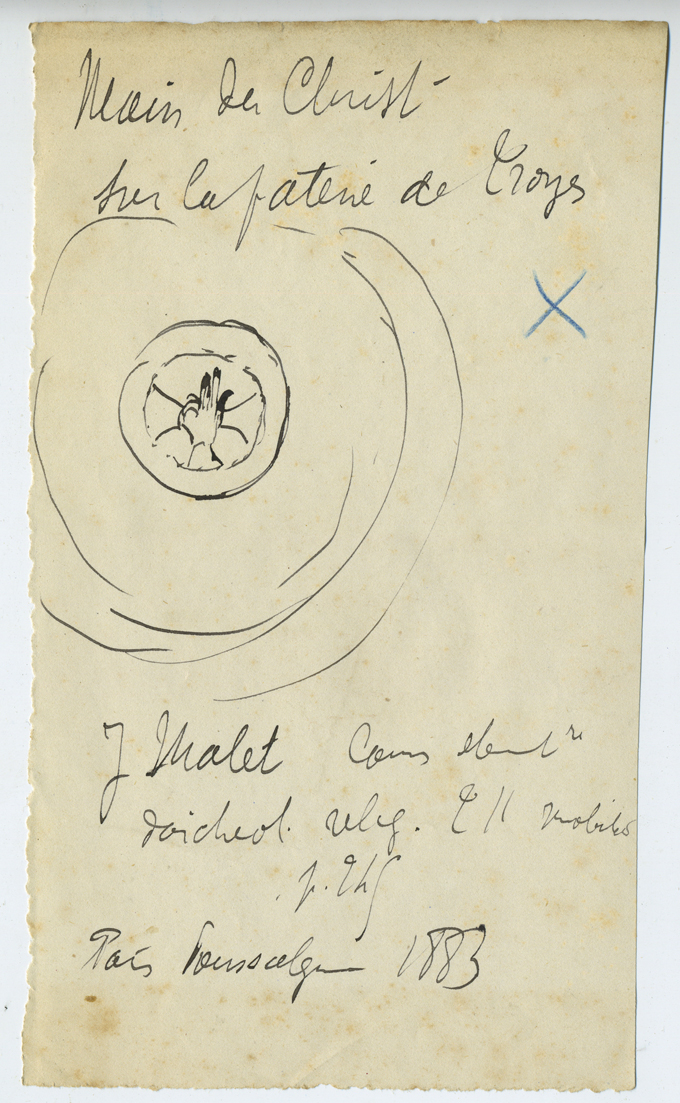 Main du Christ
sur la patène de Troyes
J Malet Cours element re
d'archeol. relig. T II mobilier
p. 245
Paris Poussielgue 1883